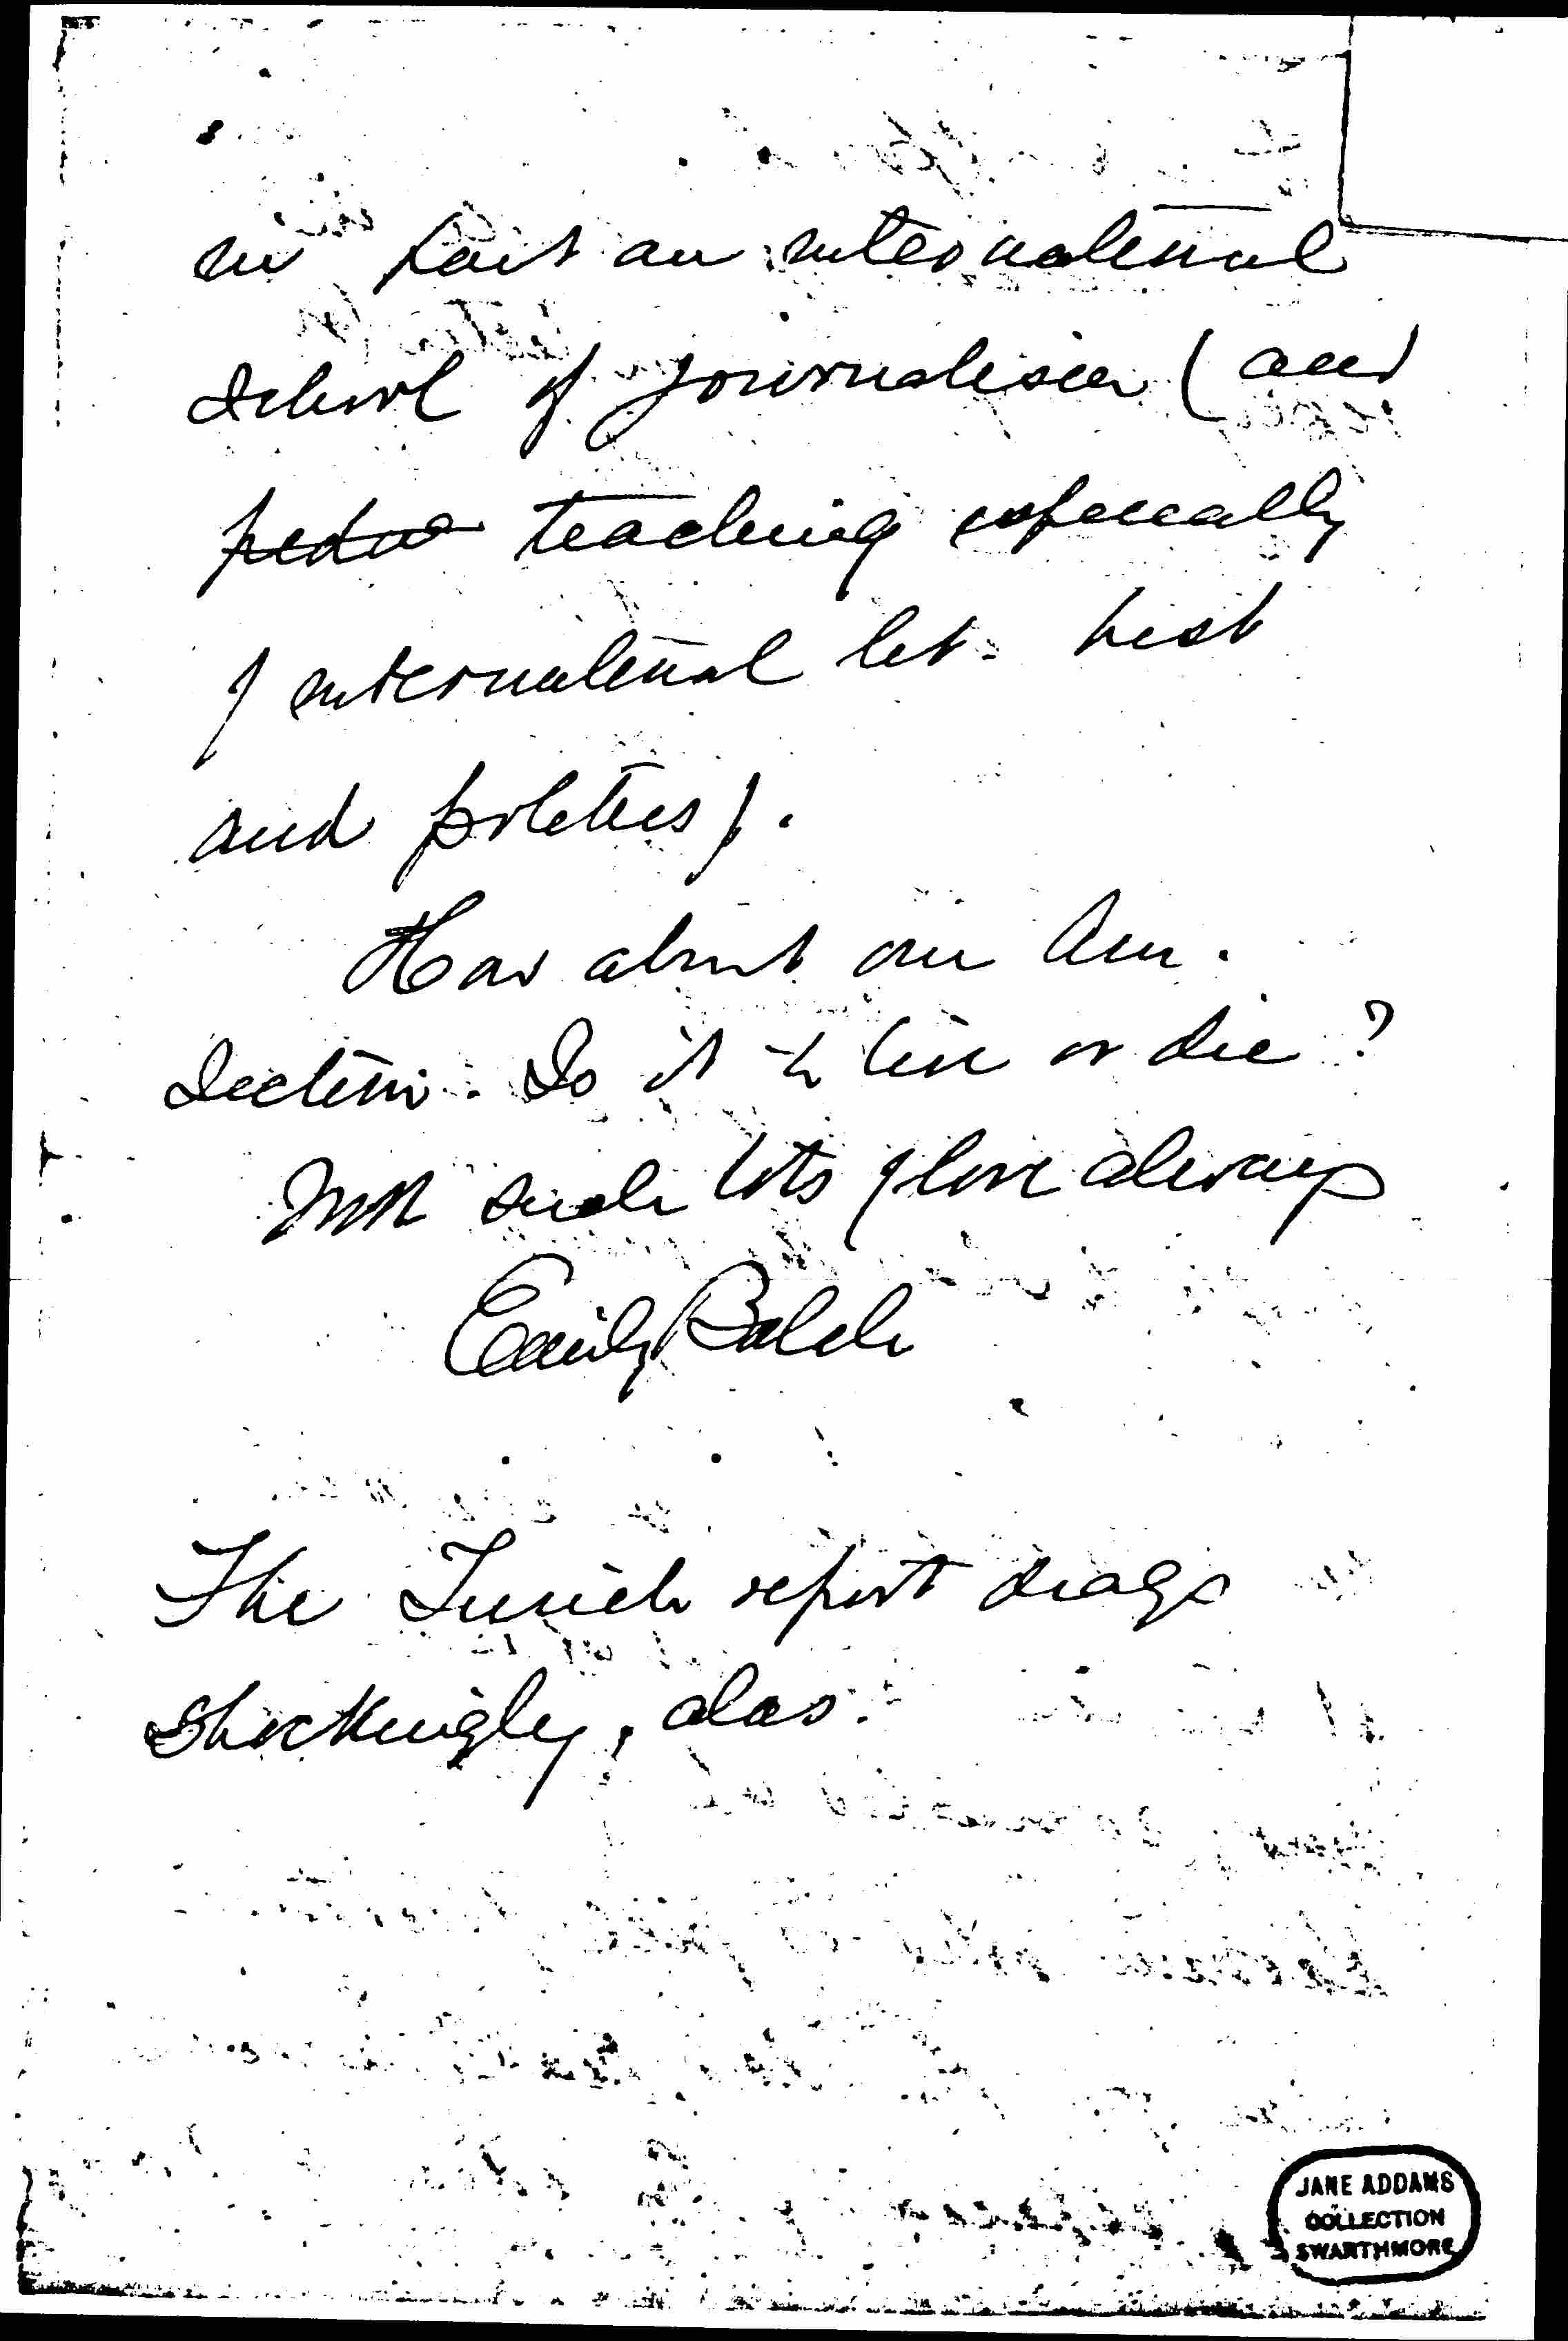 in fact an international
School of journalism (and
peda teaching especially
of international let. hist
and politics).
How about our Am.
Section. Is it to live or die?
With such lots of love always
Emily Balch
The Zurich report drags
shockingly, alas.
JANE ADDAMS
COLLECTION
SWARTHMORE